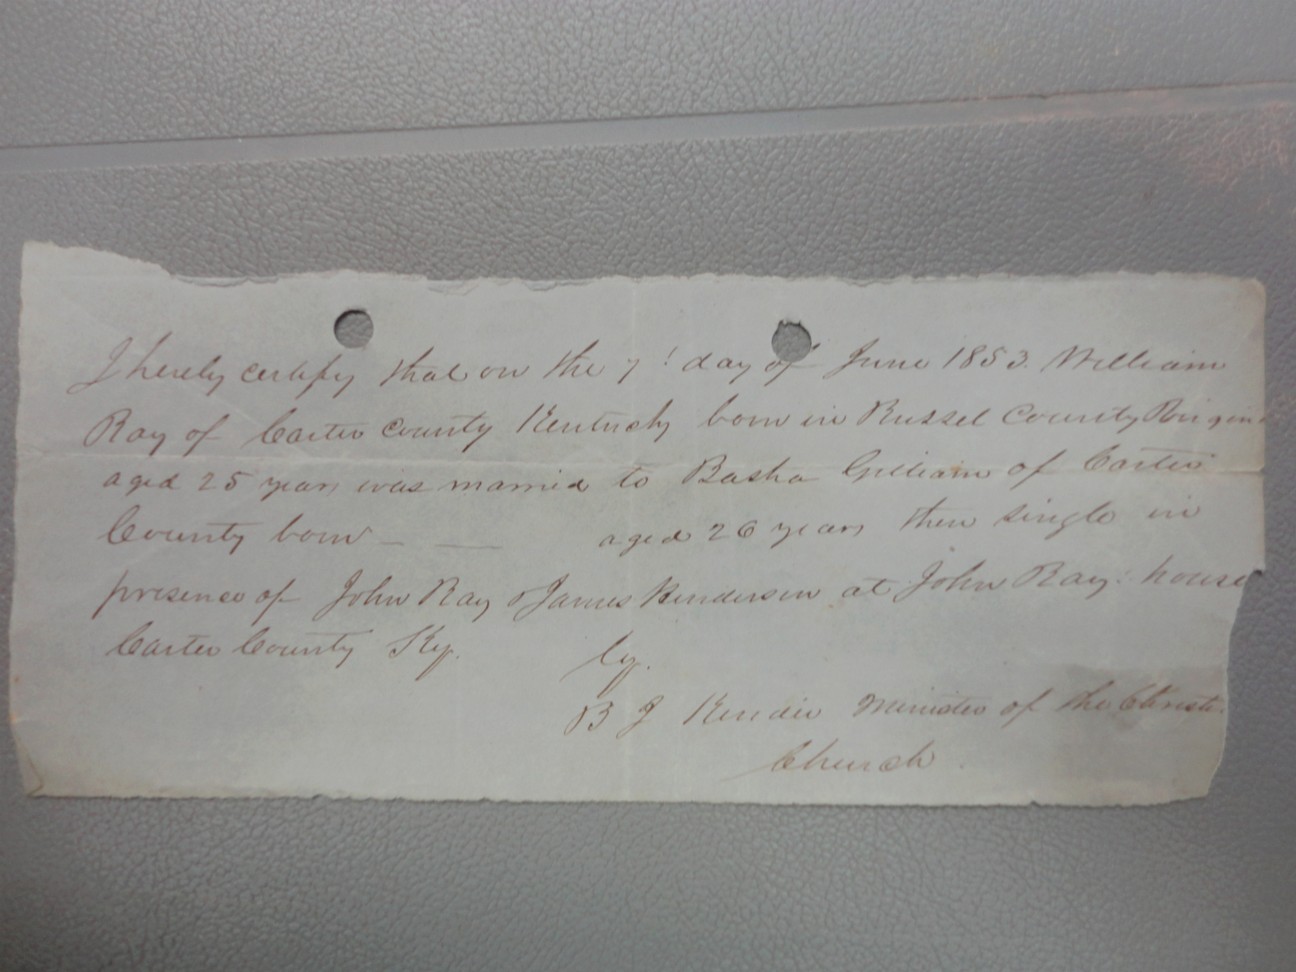 I hereby certify that on the 7! day of June 1853. William
Ray of Carter County Kentucky born in Russel County
aged 25 years was married to Basha Gilliam of Carter
County born - — aged 26 years then single in
presence of John Ray & James Henderson at John Ray house
Carter County Ky. by.
B J Minister of the Christi
Church